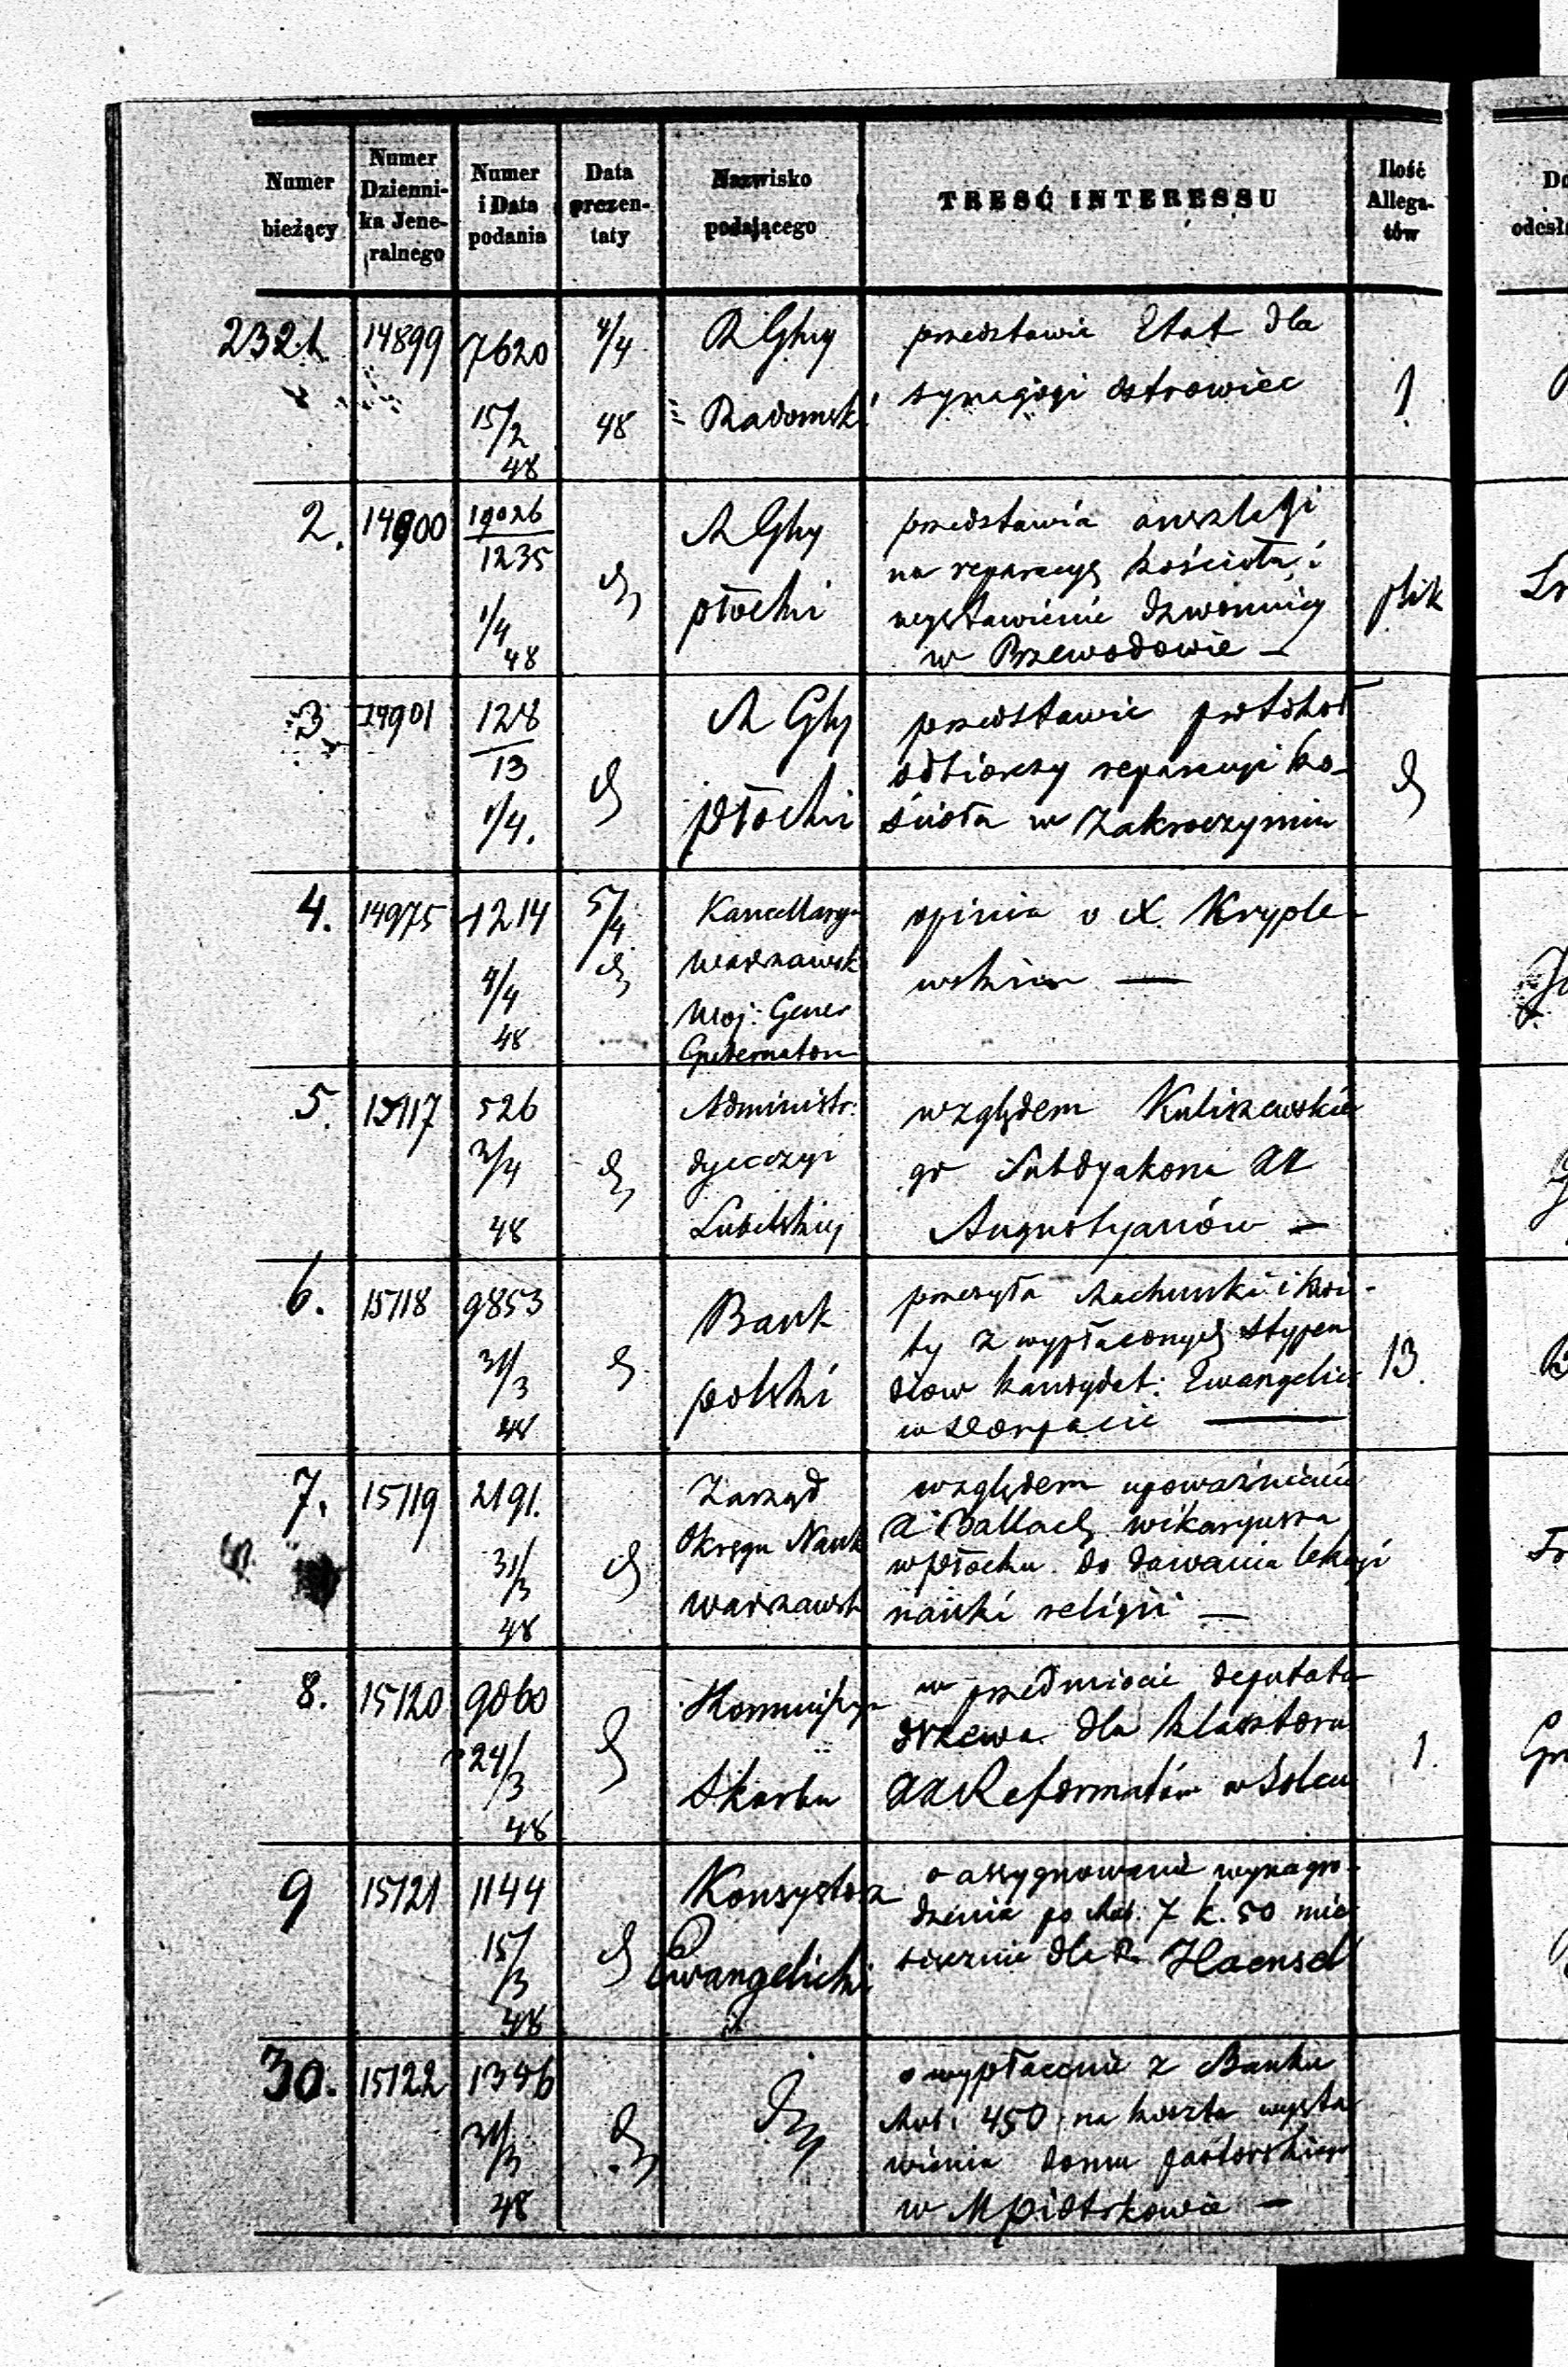 Numer bieżący | Numer Dzienni-ka Jene-ralnego | Numer i Data podania | Data prezen-taty | Nazwisko podającego | TREŚĆ INTERESSU | Ilość Allega-tów
2321 | 14899 | 7620 15/2 48 | 4/4 48 | R Glny Radomski | przedstawia Etat dla
synagogi Ostrowiec | 1
2. | 14900 | 19026/1235 1/4 48 | R Glny płocki | przedstawia anszlagi
na reparacyę kościoła i
wystawienie dzwonnicy
w Przewodowie — | plik
3 | 14901 | 128/13 1/4. | R Glny płocki | przedstawia protokół
odbiorczy reparacyi ko-
ścioła w Zakroczymiu
4. | 14975 | 1214 4/4 48 | 5/4 | Kancellarya
Warszawsk
Woj: Gener
Gubernatora | opinia o X. Kryple-
wskim —
5. | 15117 | 526 3/4 48 | Administr:
dyecezyi
Lubelskiej | względem Kuliszewskie
go Subdyakona XX
Augustyanów —
6. | 15118 | 9853 31/3 48 | Bank
polski | przesyła rachunki i kwi-
ty z wypłaconych stypen
diow kandydat: Ewangelic
w Dorpacie — | 13.
7. | 15119 | 2191. 31/3 48 | Zarząd
Okręgu Nauk
Warszawsk | względem upoważnienia
X Ballach wikaryusza
w płocku do dawania lekcyi
nauki religii —
8. | 15120 | 9060 24/3 48 | Kommissya
Skarbu | w przedmiocie deputatu
drzewa dla klasztoru
XX Reformatów w Solcu | 1.
9 | 15121 | 1144 15/3 48 | Konsystorz
Ewangelicki | o assygnowanie wynagro-
dzenia po Rub. 7 k. 50 mie
sięcznie dla P. Haensel
30. | 15122 | 1346 31/3 48 | o wypłacenie z Banku
Rub: 450 na koszta wysta
wienia domu pastorskiego
w M Piotrkowie —